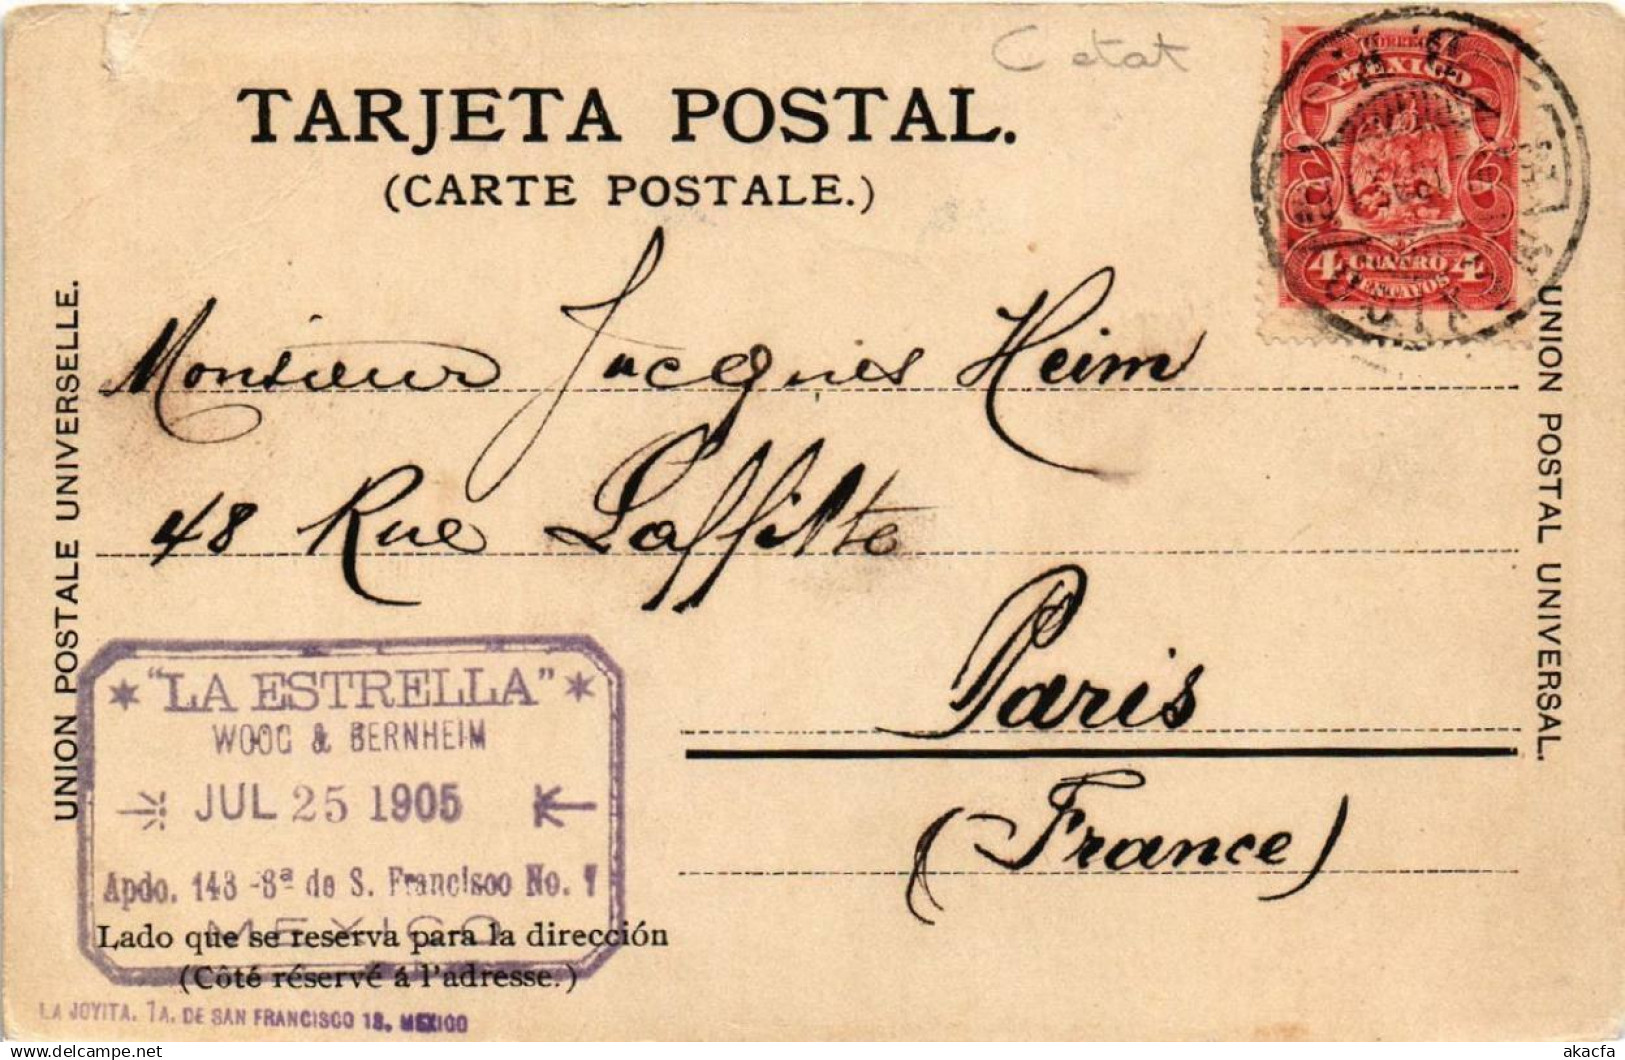 C etat
TARJETA POSTAL.
(CARTE POSTALE.)
CORREOS
MEXICO
4 CUATRO 4
CENTAVOS
UNION POSTALE UNIVERSELLE.
UNION POSTAL UNIVERSAL.
Monsieur Jacques Heim
48 Rue Laffitte
Paris
(France)
"LA ESTRELLA"
WOOG & BERNHEIM
JUL 25 1905
Apdo. 143 -3ª de S. Francisco No. 7
MEXICO
Lado que se reserva para la dirección
(Côté réservé á l'adresse.)
LA JOYITA. 1A. DE SAN FRANCISCO 13. MEXICO
akacfa
www.delcampe.net